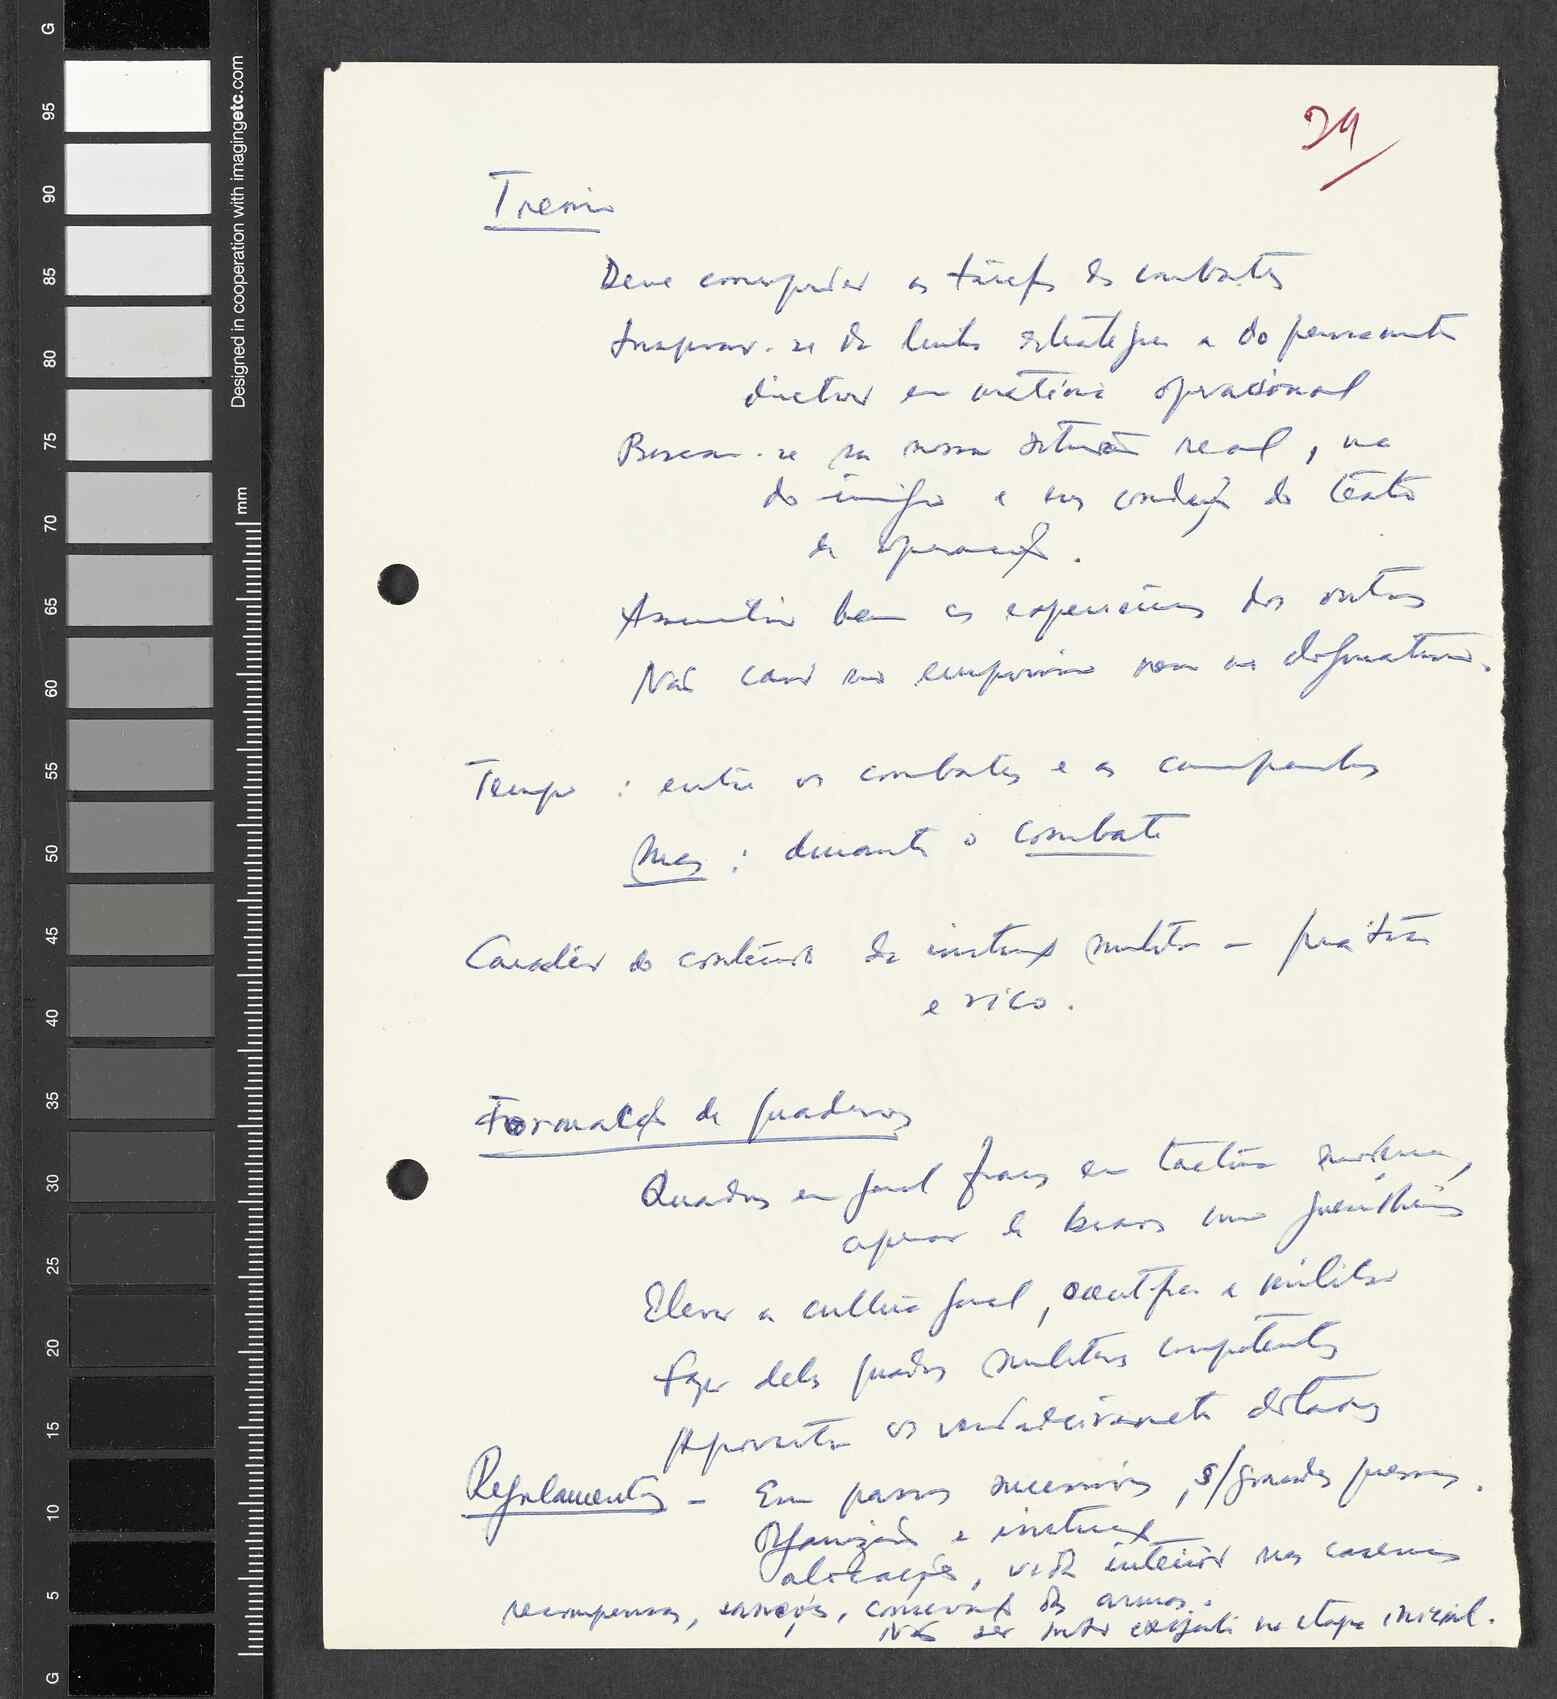 29
Treino
Deve corresponder às tarefas de combates
Inspirar-se da linha estratégica e do pensamento
director em matéria operacional
Basear-se na nossa situação real, na
do inimigo e nas condições do teatro
de operações.
Assimilar bem as experiências dos outros
Não cair no empirismo nem no dogmatismo.
Tempo : entre os combates e as campanhas
Mas : durante o combate
Carácter do conteúdo da instrução militar – prático
e rico.
Formação de quadros
Quadros em geral fracos em táctica moderna,
apesar de bravos como guerrilheiros
Elevar a cultura geral, científica e militar
Fazer deles quadros militares competentes
Aproveitar os verdadeiramente dotados
Regulamentos – Em passos sucessivos, s/ grandes pressas.
Organização e instrução
alocações, vida interior nas casernas
recompensas, sanções, conservação das armas.
Não ser muito exigente na etapa inicial.
G
95
90
85
80
75
70
65
60
55
50
45
40
35
30
25
20
15
10
5
G
Designed in cooperation with imagingetc.com
mm